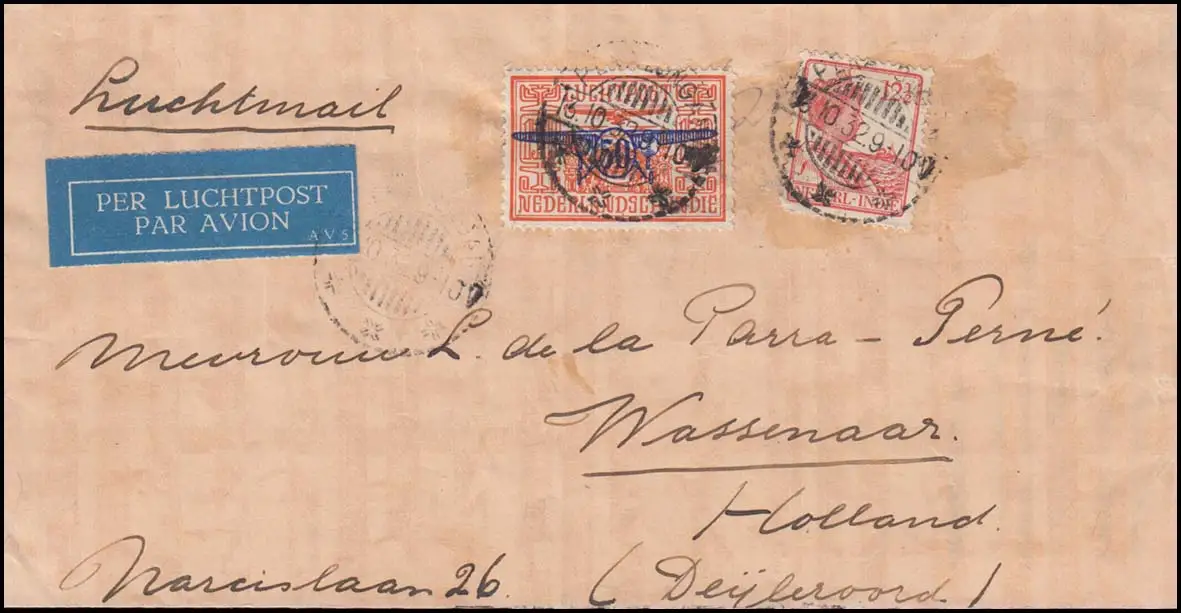 Luchtmail
PER LUCHTPOST
PAR AVION
AVS
LUCHTPOST
50
NEDERLANDSCH-INDIE
12½
NEDERL.-INDIE
10.32.9-10V
10.32.9-10V
10.32.9-10V
Mevrouw L. de la Parra – Perné.
Wassenaar.
Holland.
Narcislaan 26 (Deijleroord)